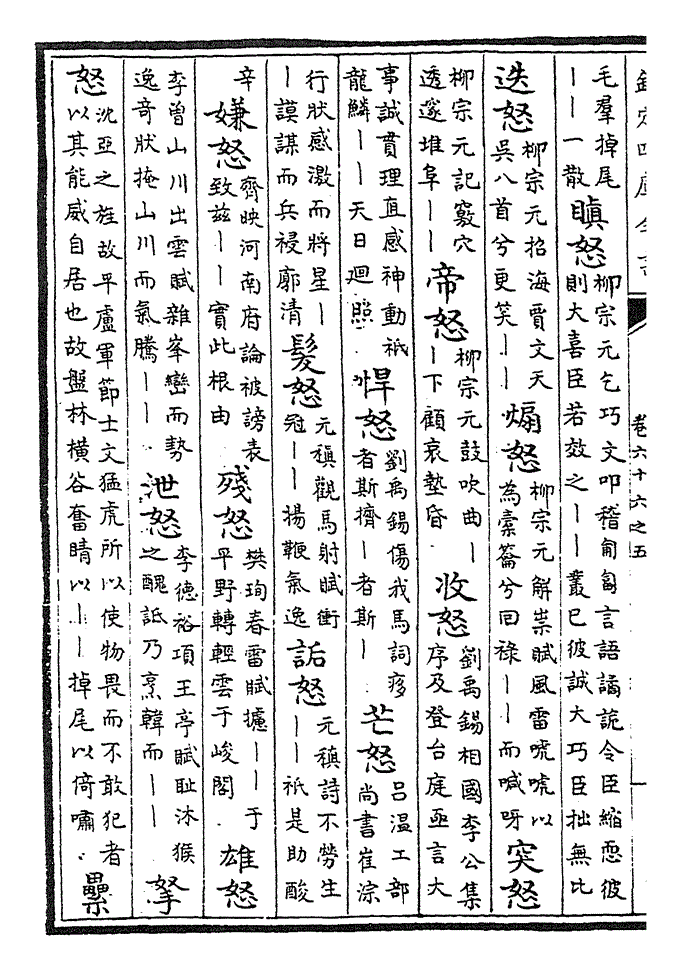 欽定四庫全書
卷六十六之五
一
毛羣掉尾
||一散
瞋怒
柳宗元乞巧文叩稽匍匐言語譎詭令臣縮恧彼
則大喜臣若效之||叢已彼誠大巧臣拙無比
迭怒
柳宗元招海賈文天
吳八首兮更笑||
煽怒
柳宗元解祟賦風雷唬唬以
為橐籥兮回祿||而喊呀
突怒
柳宗元記竅穴
透邃堆阜||
帝怒
柳宗元鼓吹曲|
|下顧哀墊昏
收怒
劉禹錫相國李公集
序及登台庭亟言大
事誠貫理直感神動祇
龍鱗||天日廻照
悍怒
劉禹錫傷我馬詞痑
者斯擠|者斯|
芒怒
呂温工部
尚書崔淙
行狀感激而將星|
|謨謀而兵祲廓清
髮怒
元稹觀馬射賦衝
冠||揚鞭氣逸
詬怒
元稹詩不勞生
||祇是助酸
辛
嫌怒
齊映河南府論被謗表
致兹||實此根由
殘怒
樊珣春雷賦攄||于
平野轉輕雲于峻閣
雄怒
李曾山川出雲賦雜峯巒而勢
逸竒狀掩山川而氣騰||
泄怒
李德裕項王亭賦耻沐猴
之醜詆乃烹韓而||
拏
怒
沈亞之旌故平盧軍節士文猛虎所以使物畏而不敢犯者
以其能威自居也故盤林橫谷奮睛以||掉尾以倚嘯
纍